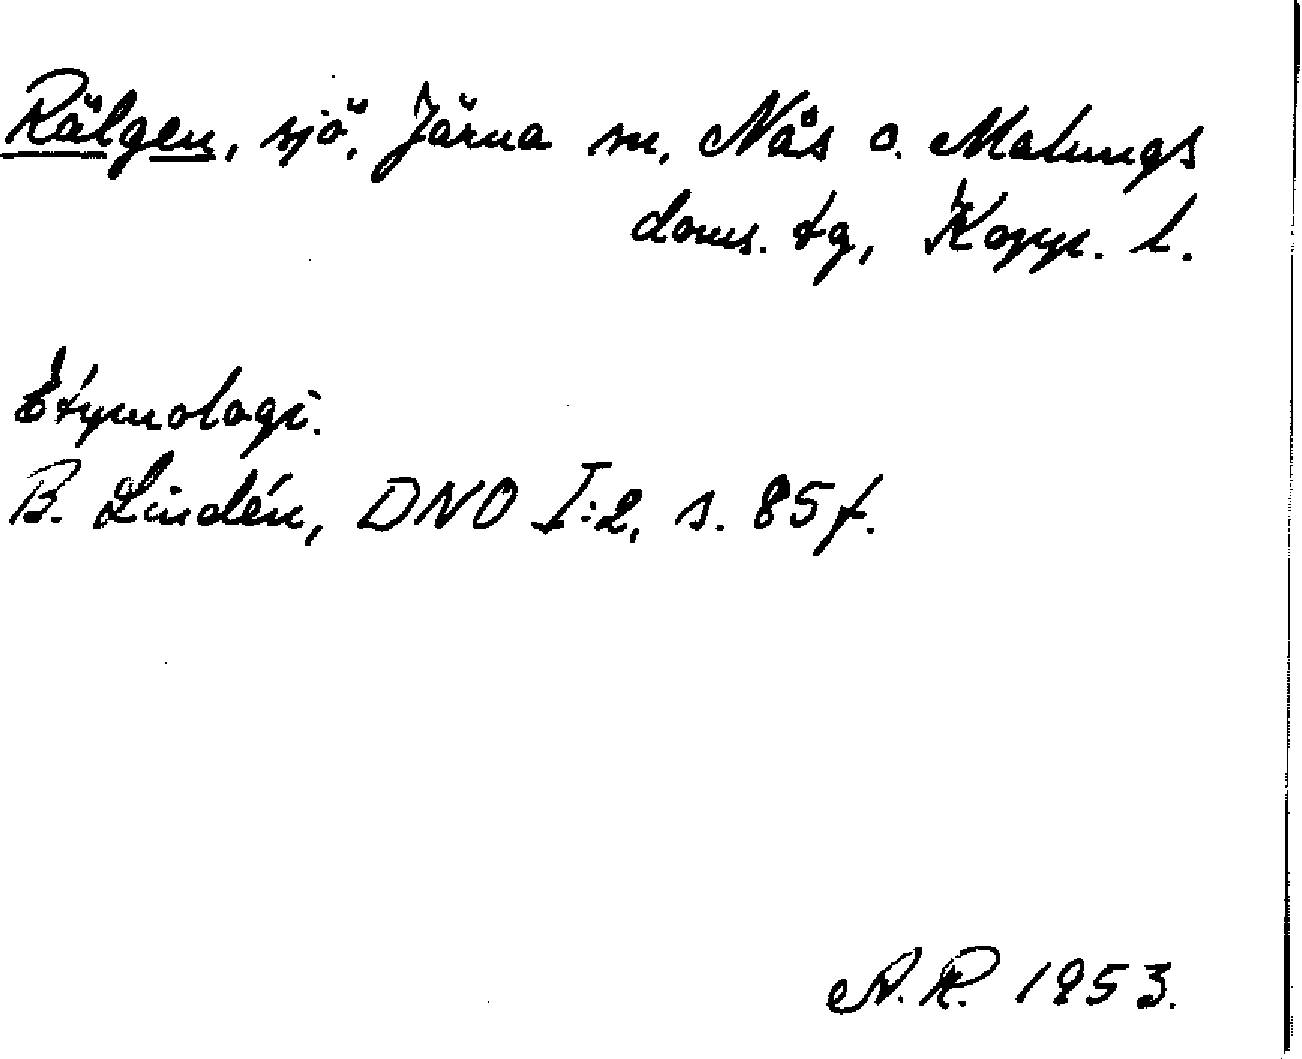 Rälgen, sjö, Järna sn, Nås o. Malungs
doms. tg, Kopp. l.
Etymologi.
B. Lindén, DNO I:2, s. 85 f.
A. R. 1953.